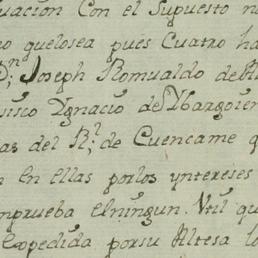 uacion Con el Supuesto n
o quelosea pues Cuatro ha
Dn; Joseph Romualdo de
sisco Ygnacio de Ybargoien
as del Rl; de Cuencame q
n En ellas porlos yntereses
mprueba elningun. Util qu
Expedida porsu Altesa lo